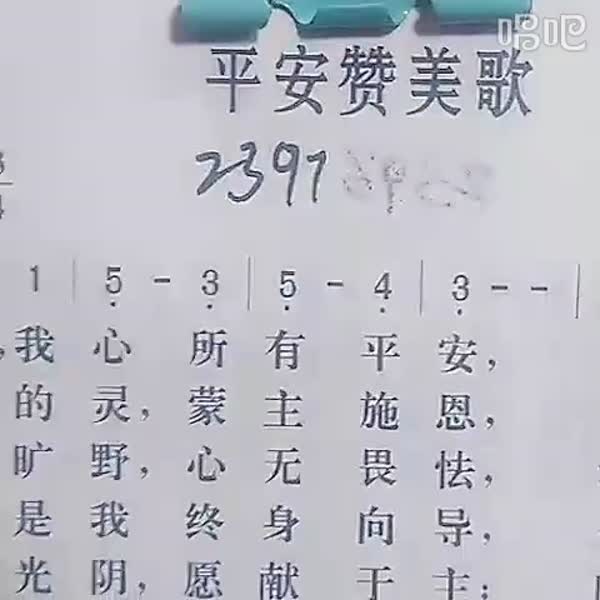 唱吧
平安赞美歌
2391
3
4
1 | 5 - 3 | 5 - 4 | 3 - - |
,我心所有平安,
的灵,蒙主施恩,
旷野,心无畏怯,
是我终身向导,
光阴,愿献于主;